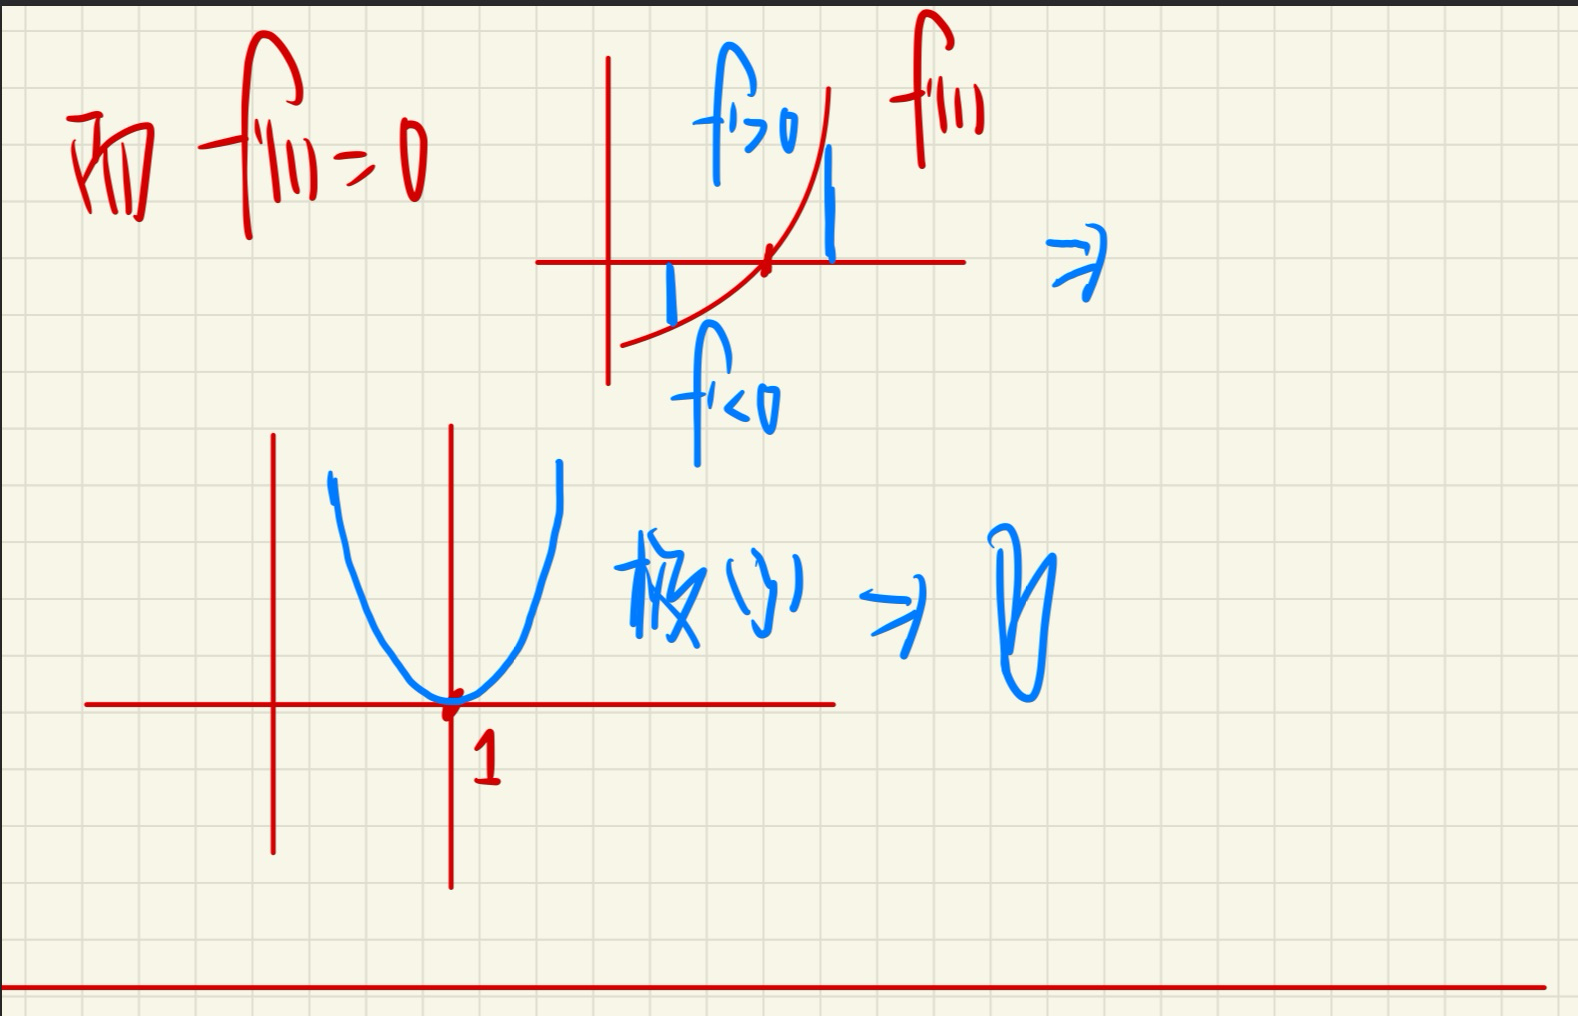 而 f'(1) = 0
f' > 0
f'(1)
⇒
f' < 0
极小 ⇒ B
1